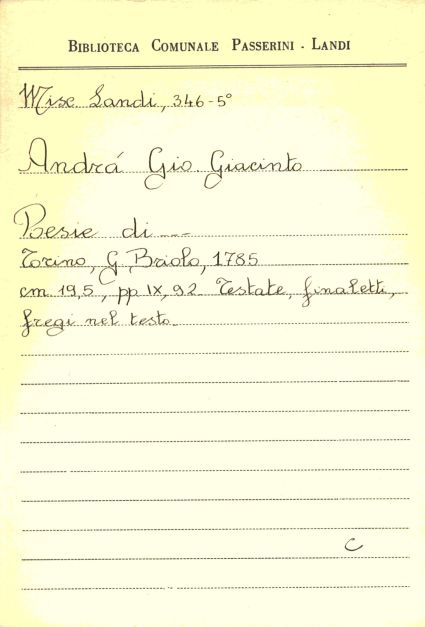 BIBLIOTECA COMUNALE PASSERINI - LANDI
Misc. Landi, 346-5°
Andrá Gio. Giacinto
Poesie di ---
Torino, G. Briolo, 1785
cm. 19,5, pp IX, 92. Testate, finaletti,
fregi nel testo.
C